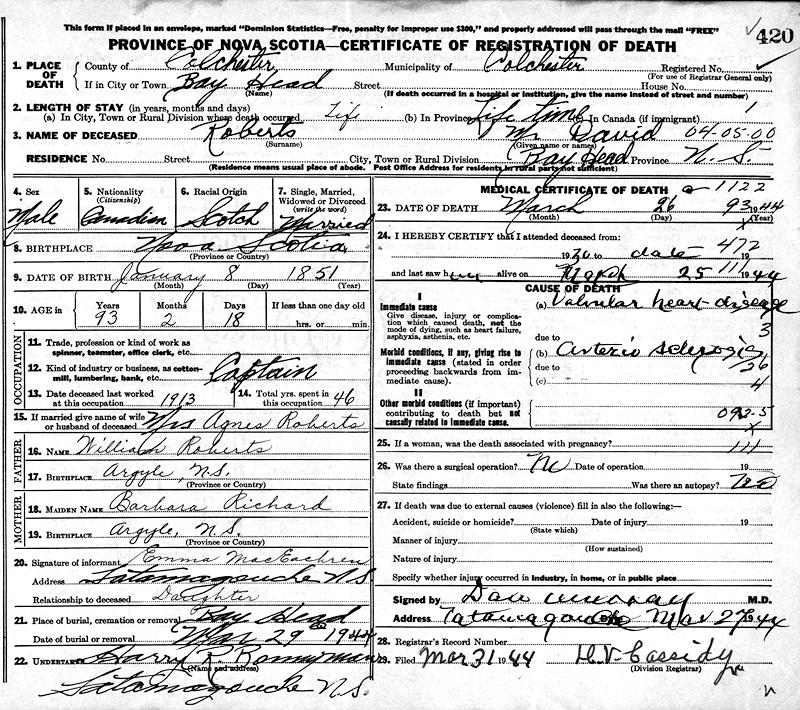 This form if placed in an envelope, marked "Dominion Statistics—Free, penalty for improper use $300," and properly addressed will pass through the mail "FREE"
PROVINCE OF NOVA SCOTIA—CERTIFICATE OF REGISTRATION OF DEATH
420
1. PLACE OF DEATH
County of Colchester Municipality of Colchester Registered No.
(For use of Registrar General only)
If in City or Town Bay Head Street House No.
(Name) (If death occurred in a hospital or institution, give the name instead of street and number)
2. LENGTH OF STAY (in years, months and days)
(a) In City, Town or Rural Division where death occurred Life (b) In Province Life time (c) In Canada (if immigrant)
3. NAME OF DECEASED Roberts Mr David 04.05.00
(Surname) (Given name or names)
RESIDENCE No. Street City, Town or Rural Division Bay Head Province N.S.
(Residence means usual place of abode. Post Office Address for residents in rural parts not sufficient)
4. Sex Male
5. Nationality (Citizenship) Canadian
6. Racial Origin Scotch
7. Single, Married, Widowed or Divorced (write the word) Married
8. BIRTHPLACE Nova Scotia
(Province or Country)
9. DATE OF BIRTH January 8 1851
(Month) (Day) (Year)
10. AGE in Years 93 Months 2 Days 18 If less than one day old
hrs. or min.
OCCUPATION
11. Trade, profession or kind of work as spinner, teamster, office clerk, etc.
12. Kind of industry or business, as cotton-mill, lumbering, bank, etc. Captain
13. Date deceased last worked at this occupation 1913
14. Total yrs. spent in this occupation 46
15. If married give name of wife or husband of deceased Mrs Agnes Roberts
FATHER
16. NAME William Roberts
17. BIRTHPLACE Argyle, N.S.
(Province or Country)
MOTHER
18. MAIDEN NAME Barbara Richard
19. BIRTHPLACE Argyle, N.S.
(Province or Country)
20. Signature of informant Emma MacEachren
Address Tatamagouche N.S.
Relationship to deceased Daughter
21. Place of burial, cremation or removal Bay Head
Date of burial or removal Mar 29 1944
22. UNDERTAKER Harry
(Name and address)
Tatamagouche N.S.
MEDICAL CERTIFICATE OF DEATH 1122
23. DATE OF DEATH March 26 93 1944
(Month) (Day) (Year)
24. I HEREBY CERTIFY that I attended deceased from:
19 to date 472 19
and last saw h alive on March 25 111 1944
CAUSE OF DEATH
I
Immediate cause
Give disease, injury or complication which caused death, not the mode of dying, such as heart failure, asphyxia, asthenia, etc.
(a) Valvular heart disease
3
due to
Morbid conditions, if any, giving rise to immediate cause (stated in order proceeding backwards from immediate cause).
(b) Arterio sclerosis
due to 26
(c) 4
II
Other morbid conditions (if important) contributing to death but not causally related to immediate cause.
092.5
25. If a woman, was the death associated with pregnancy? 111
26. Was there a surgical operation? No Date of operation 19
State findings Was there an autopsy? no
27. If death was due to external causes (violence) fill in also the following:—
Accident, suicide or homicide? Date of injury 19
(State which)
Manner of injury
(How sustained)
Nature of injury
Specify whether injury occurred in industry, in home, or in public place
Signed by Dan Murray M.D.
Address Tatamagouche Mar 27 1944
28. Registrar's Record Number
29. Filed Mar 31 1944 H.V. Cassidy
(Division Registrar)